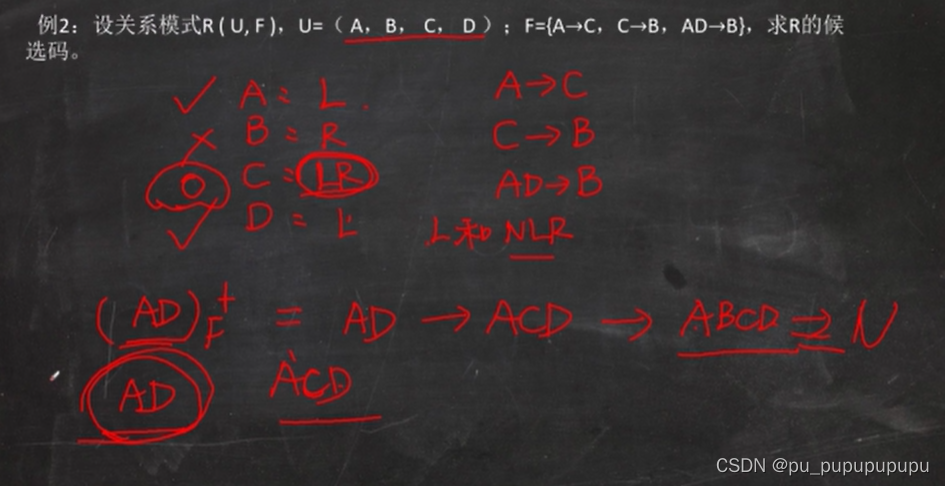 例2：设关系模式R ( U, F )，U=（ A，B， C， D ）；F={A→C，C→B，AD→B}，求R的候
选码。
✓ A: L. A→C
× B: R C→B
C: LR AD→B
✓ D: L L和NLR
(AD)F+ = AD → ACD → ABCD
AD ACD
CSDN @pu_pupupupupu